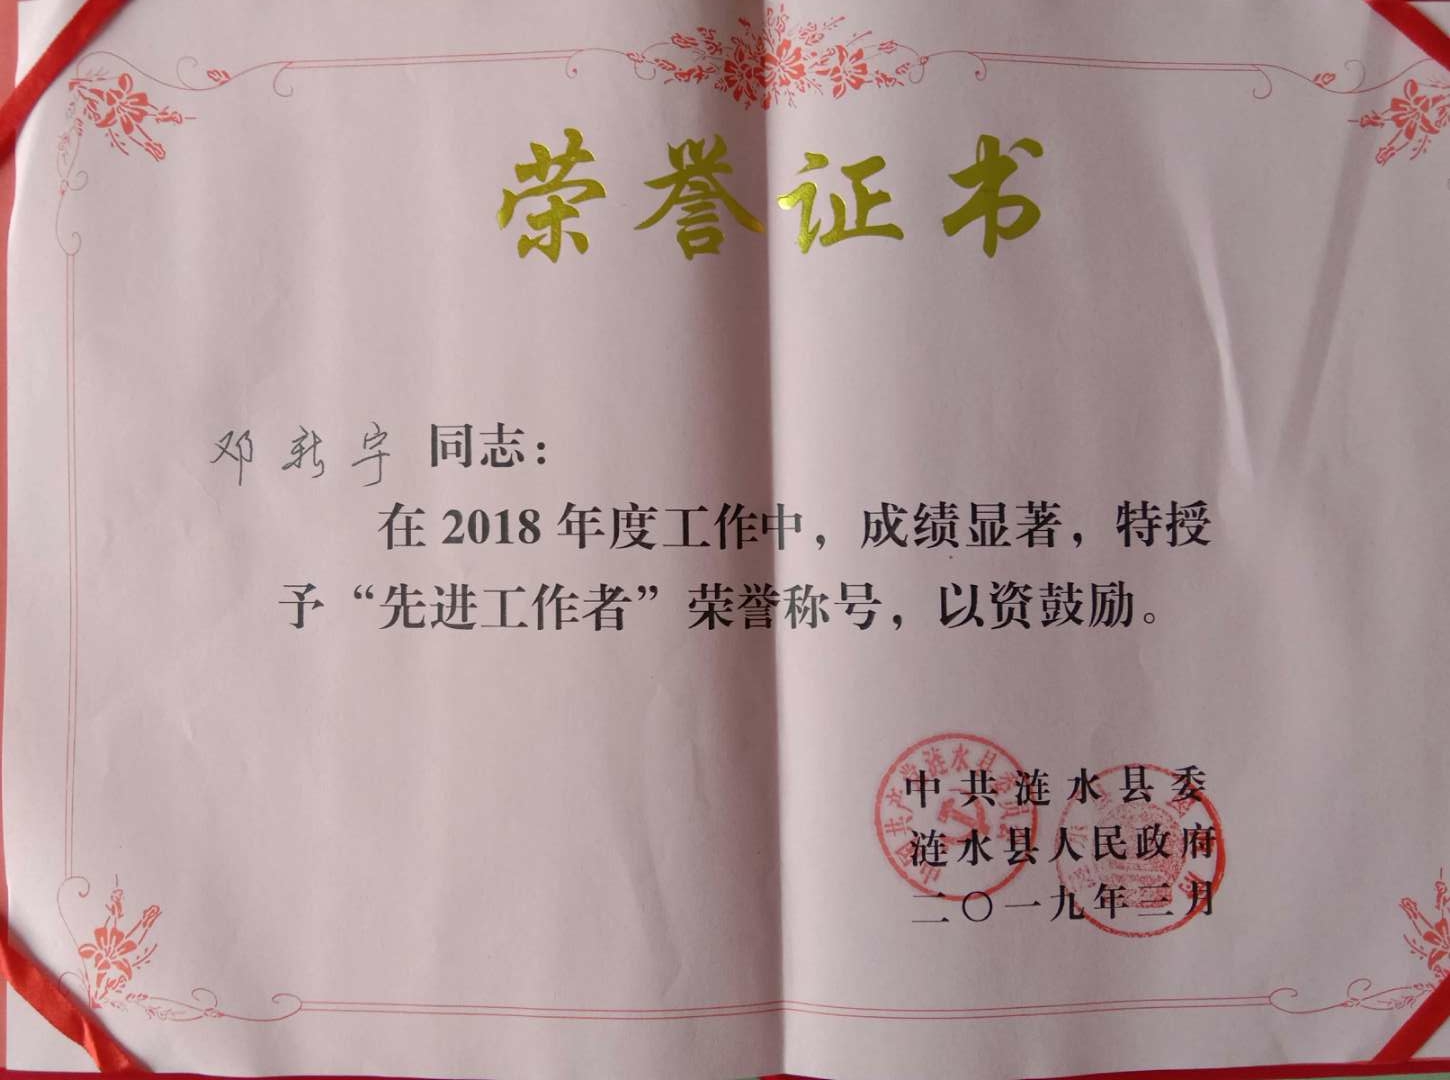 荣誉证书
邓新宇 同志：
在 2018 年度工作中，成绩显著，特授
予“先进工作者”荣誉称号，以资鼓励。
中共涟水县委
涟水县人民政府
二〇一九年三月
中国共产党涟水县委员会